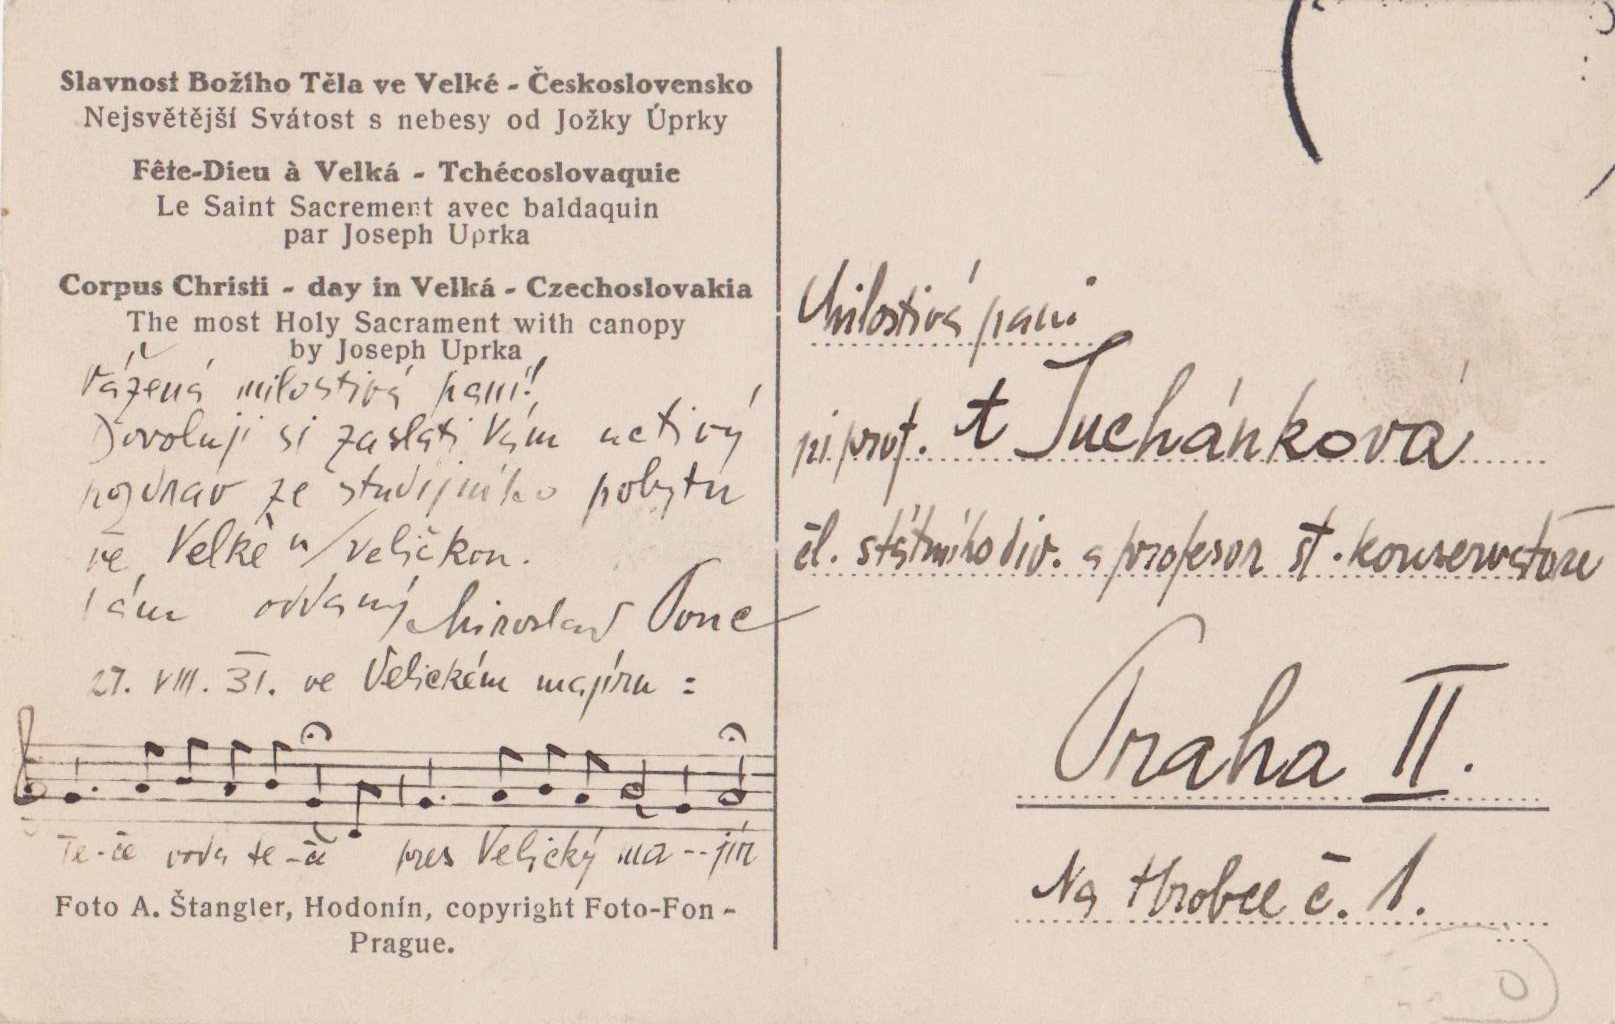 Slavnost Božího Těla ve Velké - Československo
Nejsvětější Svátost s nebesy od Jožky Úprky
Fête-Dieu à Velká - Tchécoslovaquie
Le Saint Sacrement avec baldaquin
par Joseph Uprka
Corpus Christi - day in Velká - Czechoslovakia
The most Holy Sacrament with canopy
by Joseph Uprka
Vážená milostivá paní!
Dovoluji si zaslati Vám uctivý
pozdrav ze studijního pobytu
ve Velké n/Veličkou.
Vám oddaný Miroslav Ponc
27. VIII. 31. ve Velickém majíru :
Te-če voda te-če přes Velický ma--jír
Foto A. Štangler, Hodonín, copyright Foto-Fon -
Prague.
Milostivá paní
pí. prof. Suchánková
čl. státního div. a profesor st. konservatoře
Praha II.
Na Hrobci č. 1.